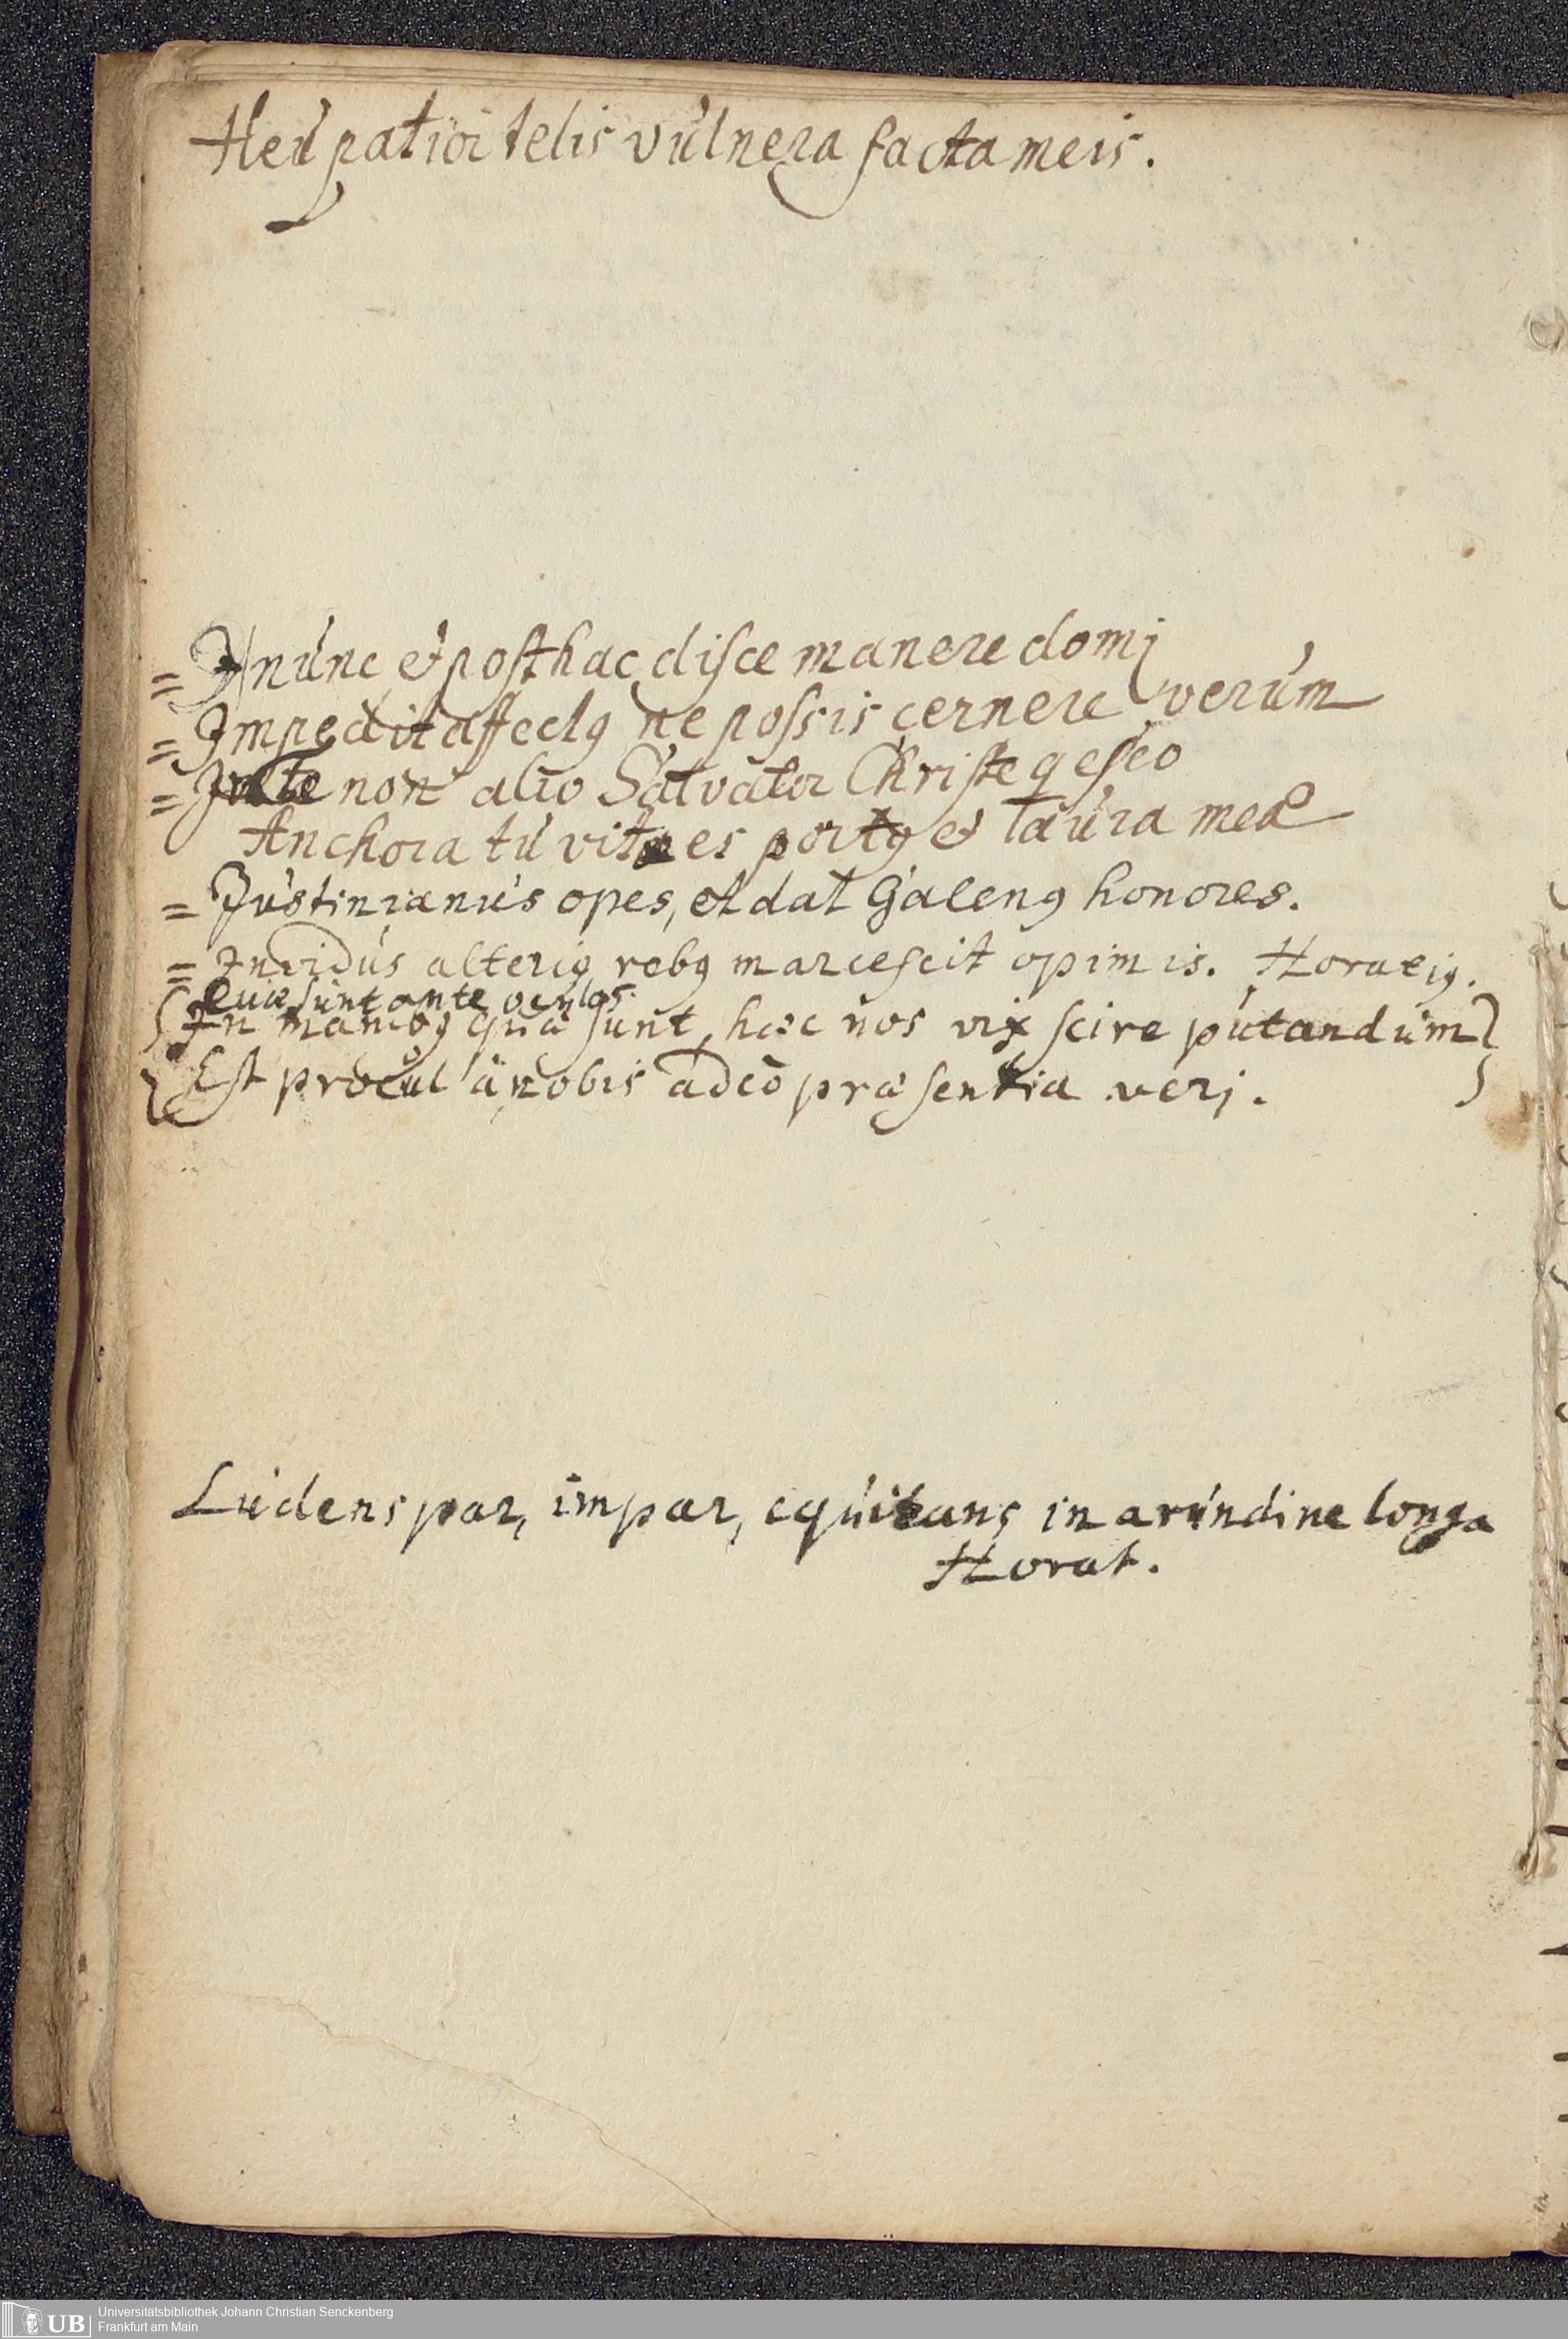 Heu patior telis vulnera facta meis.
I nunc et posthac disce manere domj
= Impedit affectꝰ ne possis cernere verum
= In te non alio Salvator Christe qesco
Anchora tu vitæ es portꝰ et laura mea
= Justinianus opes, et dat Galenꝰ honores.
= Invidus alteriꝰ rebꝰ marcescit opimis. Horatiꝰ.
Quæ sunt ante oculos.
In manibꝰ quæ sunt, hæc nos vix scire putandum
Est procul à nobis adeò præsentia verj.
Ludens par, impar, equitans in arundine longa
Horat.
UB Universitätsbibliothek Johann Christian Senckenberg
Frankfurt am Main